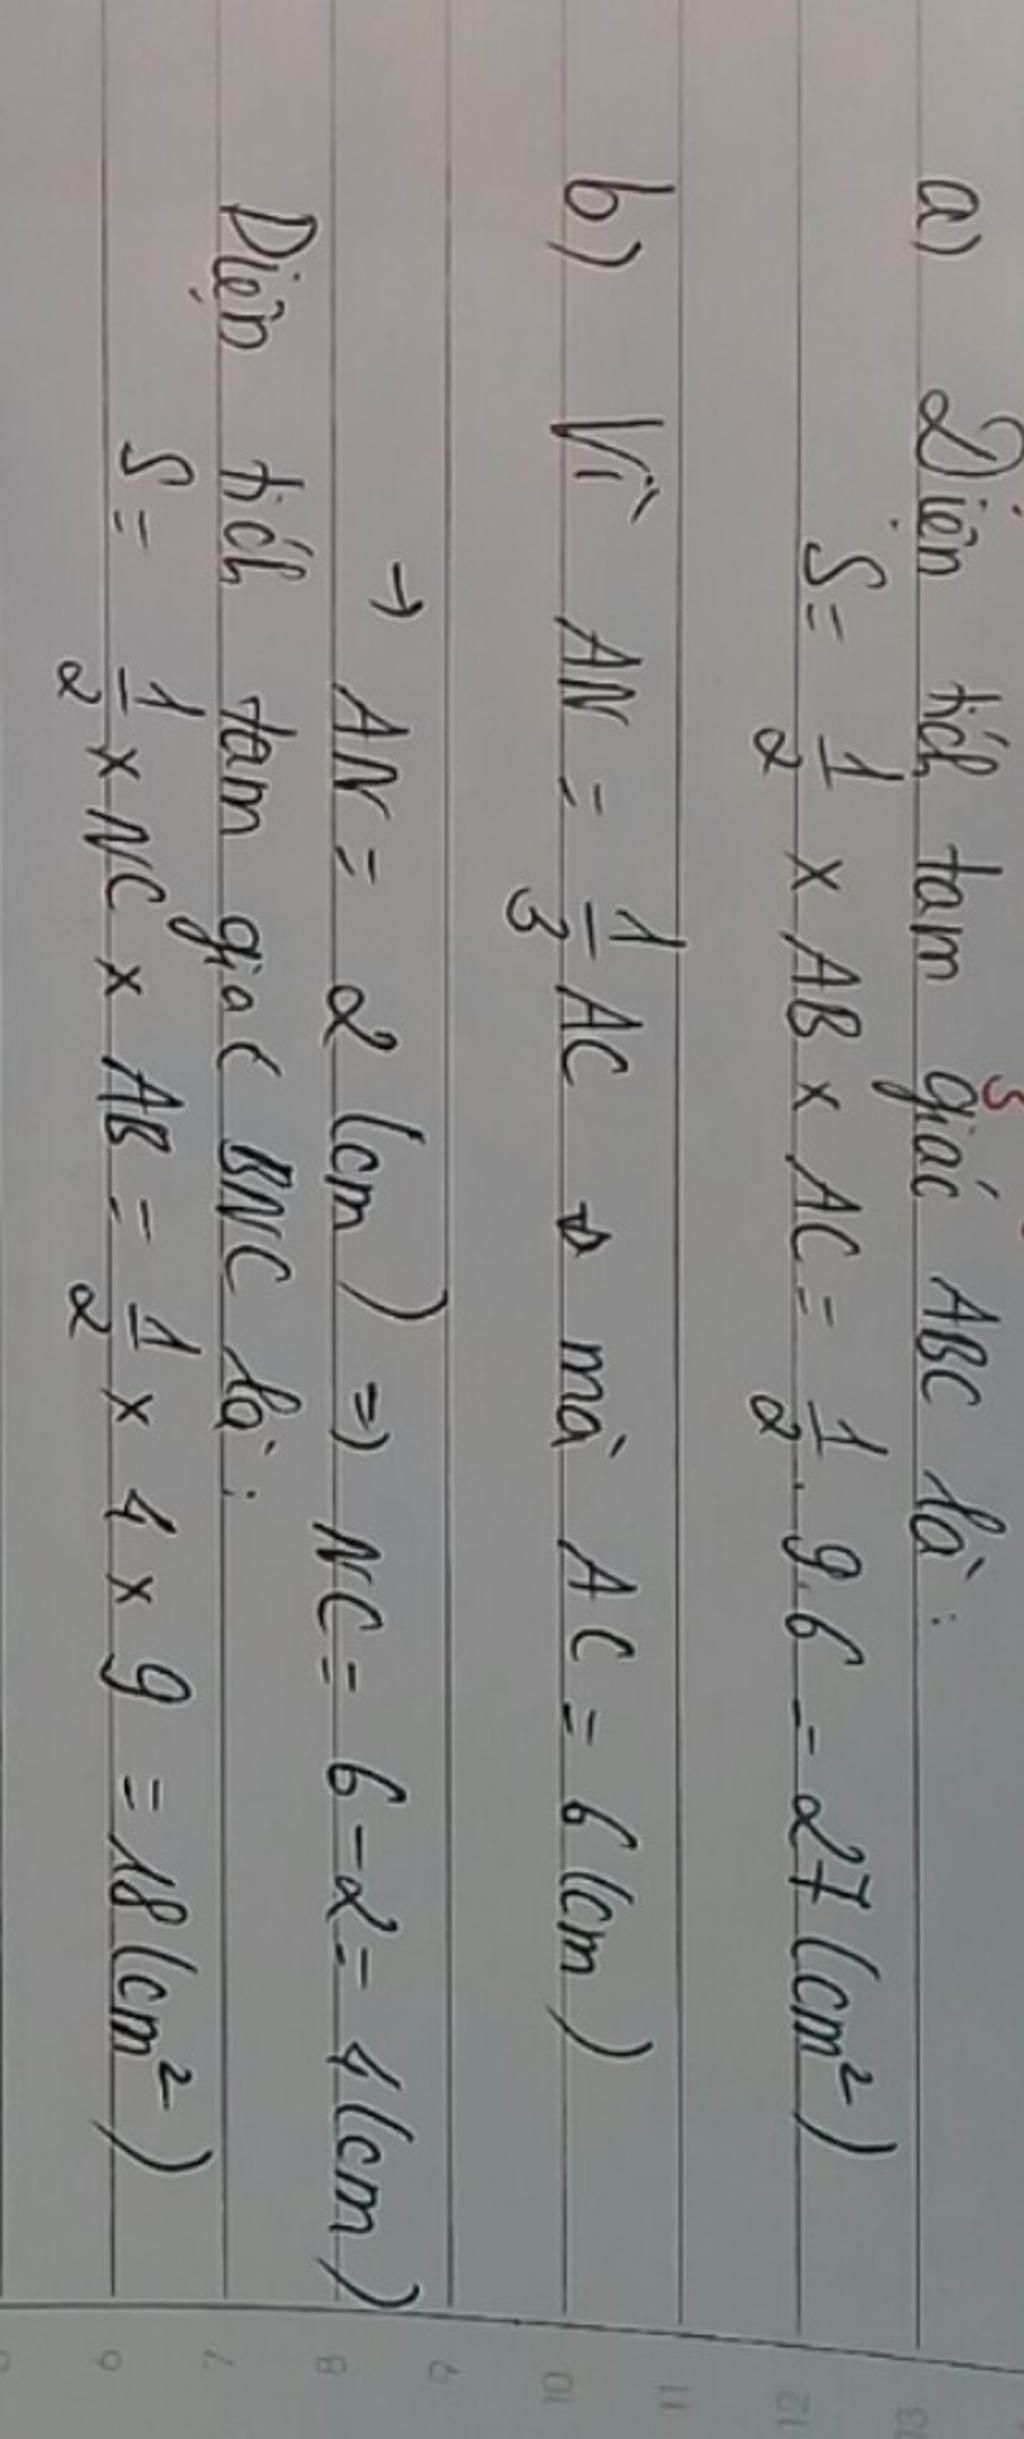 a) Diện tích tam giác ABC là:
S = 1/2 x AB x AC = 1/2 . 9.6 = 27 (cm²)
b) Vì AN = 1/3 AC mà AC = 6 (cm)
→ AN = 2 (cm) => NC = 6 - 2 = 4 (cm)
Diện tích tam giác BNC là:
S = 1/2 x NC x AB = 1/2 x 4 x 9 = 18 (cm²)
13
12
11
10
9
8
7
6